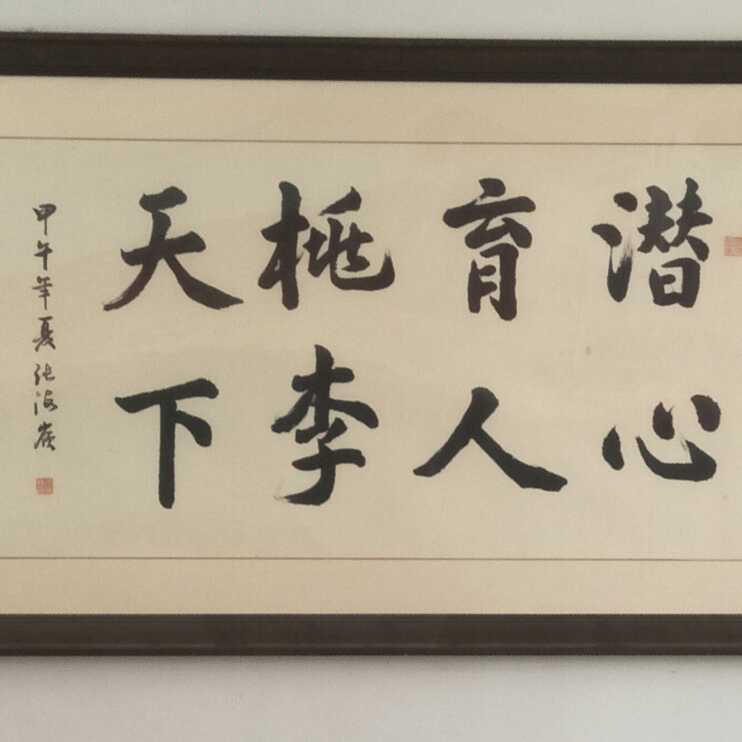 潜心
育人
桃李
天下
甲午年夏张海岭